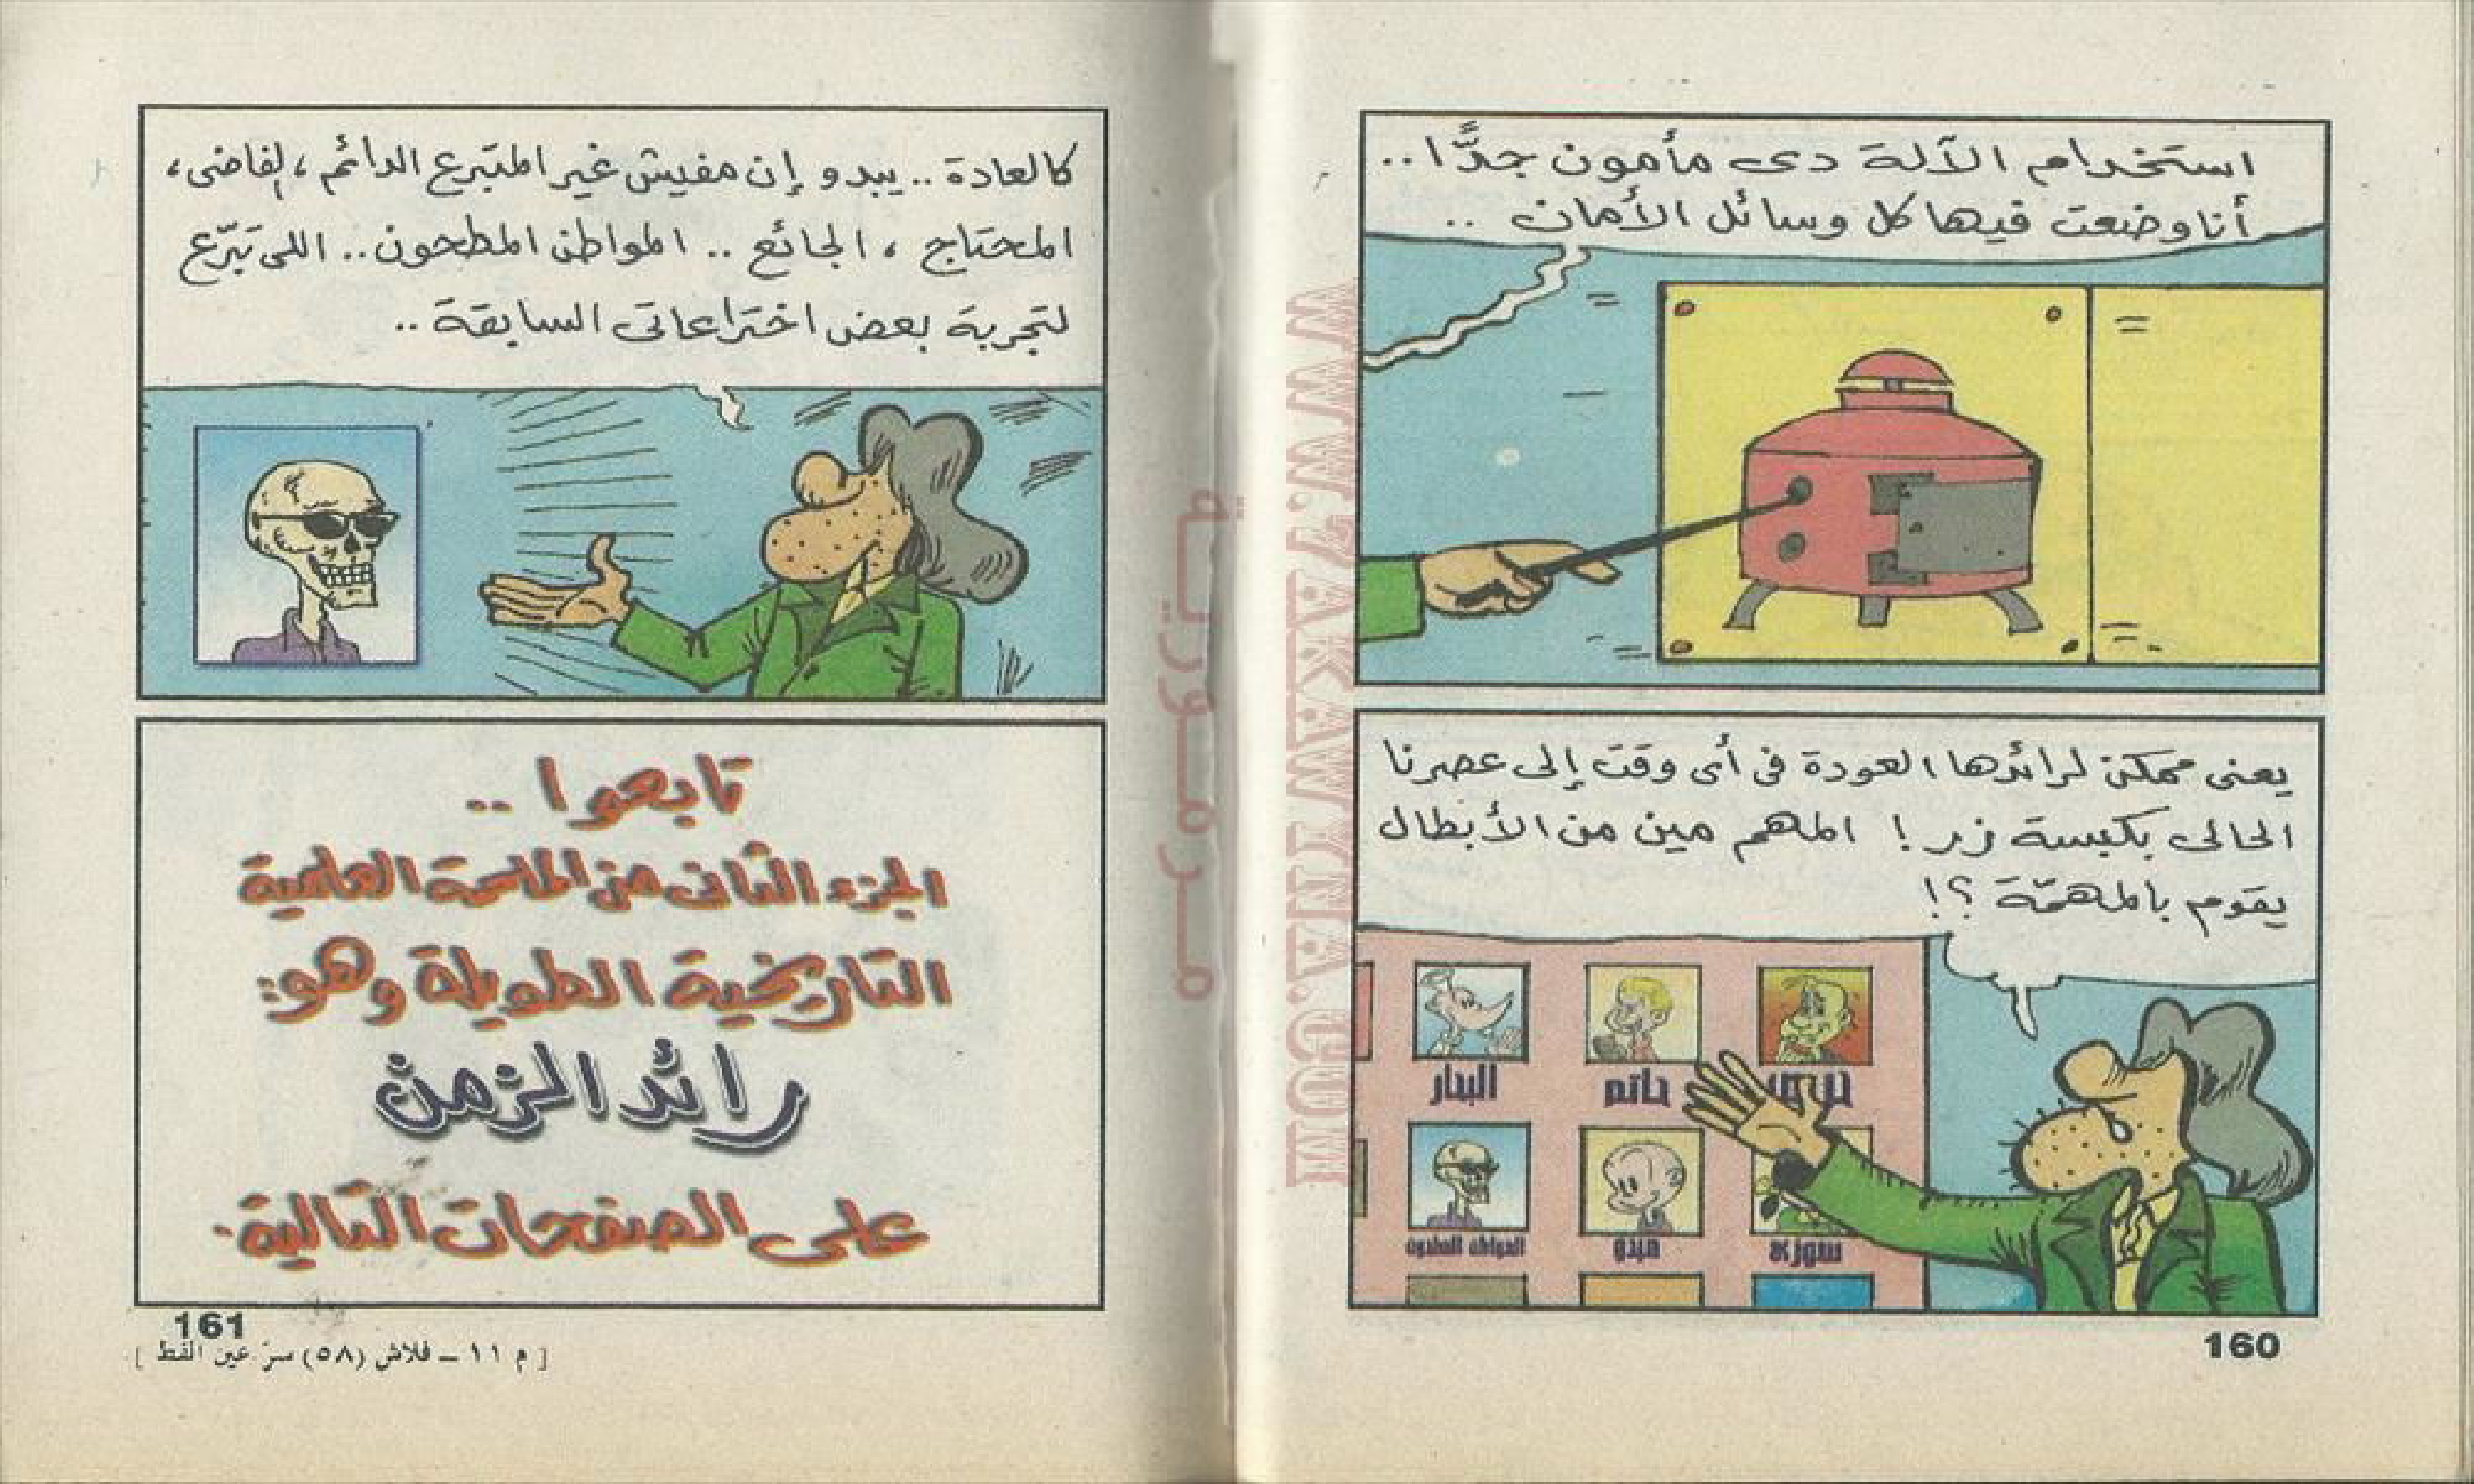 استخدام الآلة دى مأمون جدًّا ..
أنا وضعت فيها كل وسائل الأمان ..
يعنى ممكن لرائدها العودة فى أى وقت إلى عصرنا
الحالى بكبسة زر ! المهم مين من الأبطال
يقوم بالمهمّة ؟!
حاتم
البحار
سورى
ميدو
المواطن المطحون
160
كالعادة .. يبدو إن مفيش غير المتبرع الدائم ، الفاضى ،
المحتاج ، الجائع .. المواطن المطحون .. اللى تبرّع
لتجربة بعض اختراعاتى السابقة ..
تابعوا ..
الجزء الثانى من الملحمة العلمية
التاريخية الطويلة وهو:
رائد الزمن
على الصفحات التالية .
161
[ م ١١ – فلاش (٥٨) سرّ عين القط ]
مرمورية
WWW.ARAKAWYNEAR.COM